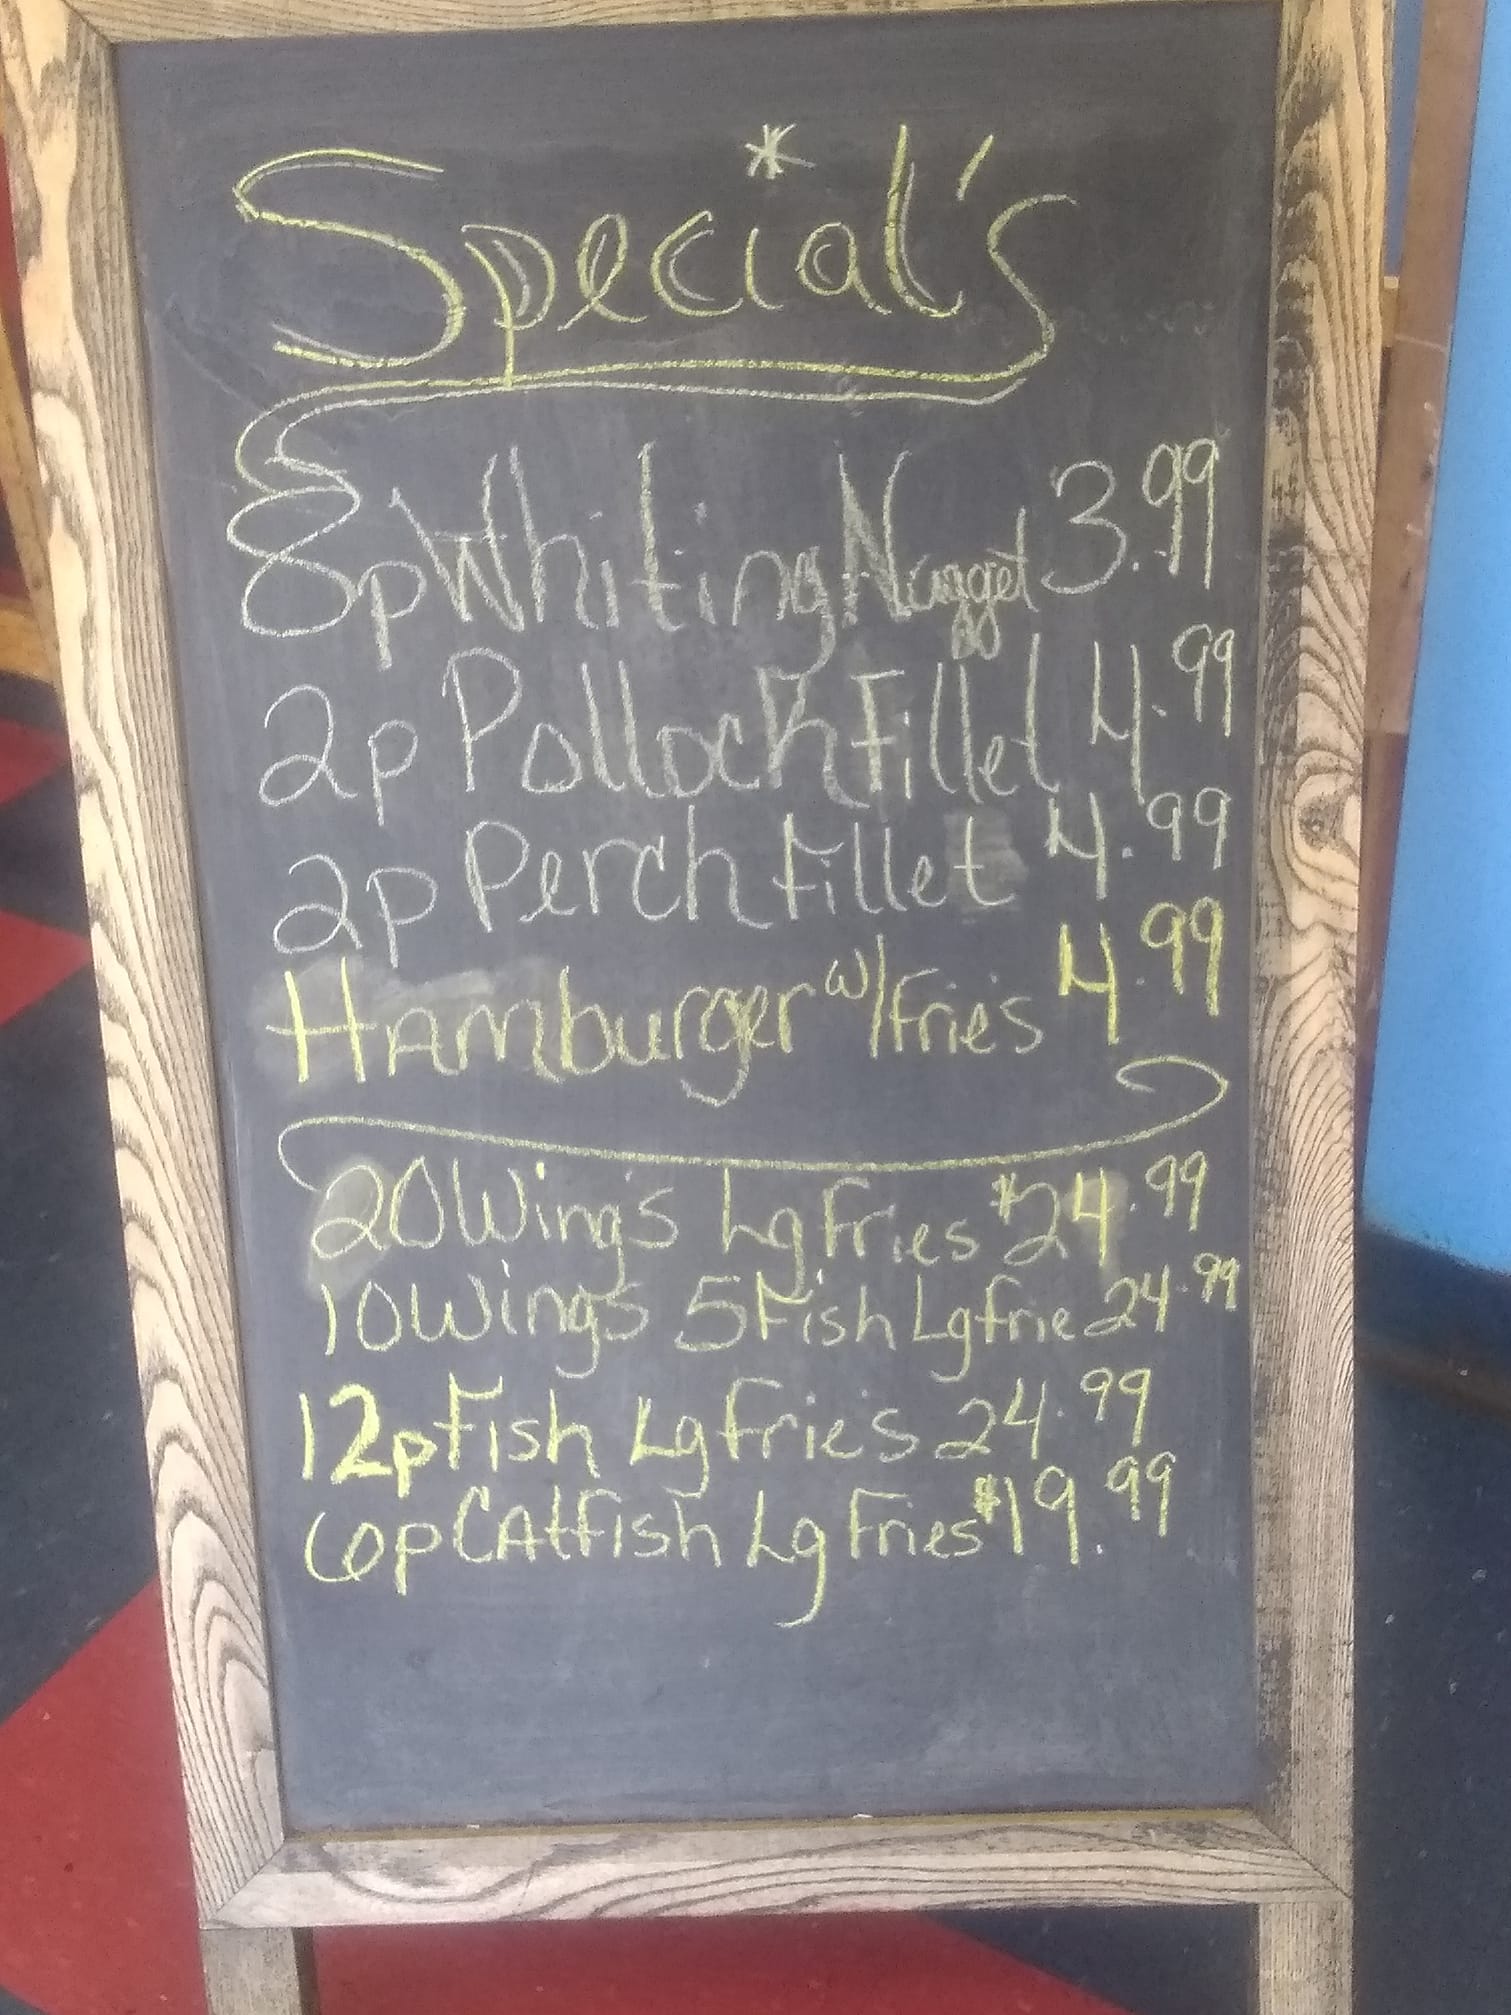 Special's
8p Whiting Nugget 3.99
2p Polloch Fillet 4.99
2p Perch Fillet 4.99
Hamburger w/Frie's 4.99
20 Wing's Lg Fries $24.99
10 Wings 5 Fish Lg frie 24.99
12p Fish Lg Frie's 24.99
6p Catfish Lg Fries $19.99